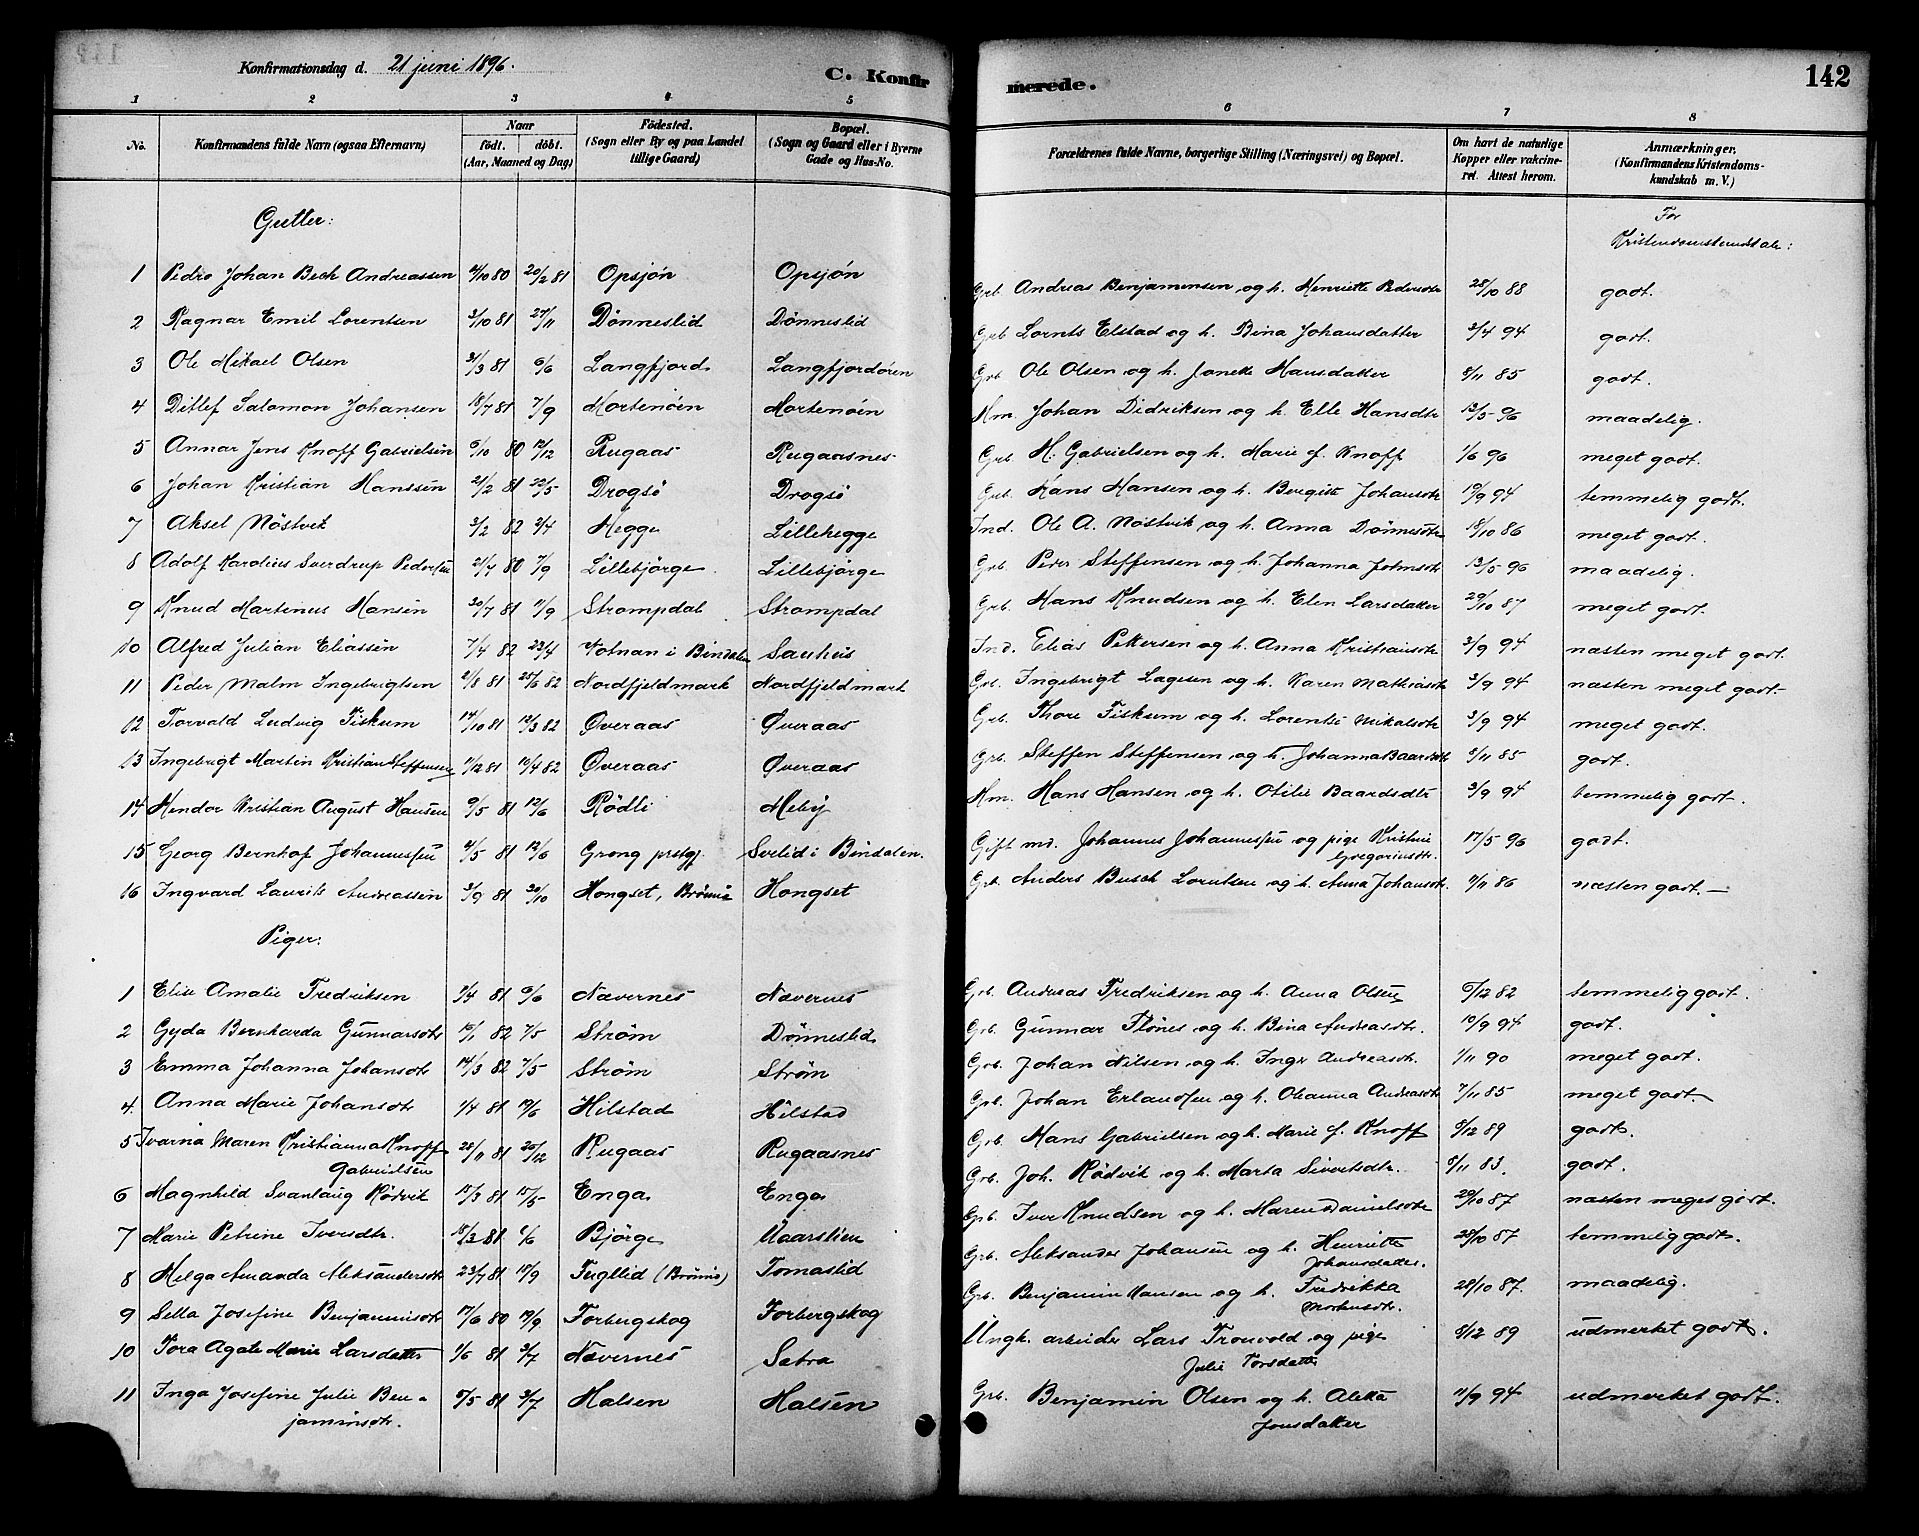 Konfirmationsdag d. 21 juni 1896.
C. Konfirmerede.
142
1 2 3 4 5 6 7 8
No.
Konfirmandens fulde Navn (ogsaa Efternavn)
Naar
födt. döbt.
(Aar, Maaned og Dag)
Födested.
(Sogn eller By og paa Landet
tillige Gaard)
Bopæl.
(Sogn og Gaard eller i Byerne
Gade og Hus-No.
Forældrenes fulde Navne, borgerlige Stilling (Næringsvei) og Bopæl.
Om havt de naturlige
Kopper eller vakcine-
ret. Attest herom.
Anmærkninger.
(Konfirmandens Kristendoms-
kundskab m. V.)
Gutter:
For
Kristendomskundskab:
1 Pedro Johan Bech Andreassen /10 80 20/2 81 Opsjøn Opsjøn Grb. Andreas Benjaminsen og h. Henriette Pedersdtr 28/10 88 godt.
2 Ragnar Emil Lorentsen 3/10 81 27/11 Dønneslid Dønneslid Grb. Lornts Elstad og h. Bina Johansdatter 3/4 94 godt.
3 Ole Mikael Olsen 31/3 81 6/6 Langfjord Langfjordøren Grb. Ole Olsen og h. Janette Hansdatter 8/11 85 godt.
4 Ditlef Salomon Johansen 18/7 81 7/9 Mortenøen Mortenøen Hm. Johan Didriksen og h. Elle Hansdtr 13/5 96 maadelig.
5 Annar Jens Knoff Gabrielsen 6/10 80 12/12 Rugaas Rugaasnes Grb. H. Gabrielsen og h. Marie f. Knoff 1/6 96 meget godt.
6 Johan Kristian Hanssen 21/2 81 22/5 Drogsø Drogsø Grb. Hans Hansen og h. Bergitte Johansdtr 10/9 94 temmelig godt.
7 Aksel Nöstvik 3/2 82 2/4 Hegge Lillehegge Ind. Ole A. Nöstvik og h. Anna Dønnesdtr 18/10 86 meget godt.
8 Adolf Karolius Sverdrup Pedersen 21/7 80 7/9 Lillebjörge Lillebjörge Grb. Peder Steffensen og h. Johanna Johnsdtr 13/5 96 maadelig.
9 Knud Martenus Hansen 20/7 81 11/9 Strompdal Strompdal Grb. Hans Knudsen og h. Elen Larsdatter 29/10 87 meget godt.
10 Alfred Julian Eliassen 7/4 82 23/4 Votnan i Bindalen Sauhus Ind. Elias Pettersen og h. Anna Kristiansdtr 3/9 94 næsten meget godt.
11 Peder Malm Ingebrigtsen 2/8 81 25/6 82 Nordfjeldmark Nordfjeldmark Grb. Ingebrigt Lagesen og h. Karen Mathiasdtr 3/9 94 næsten meget godt.
12 Torvald Ludvig Fiskum 14/10 81 12/3 82 Øveraas Øveraas Grb. Thore Fiskum og h. Lorentse Mikalsdtr 3/9 94 meget godt.
13 Ingebrigt Martin Kristian Steffensen 11/12 81 10/4 82 Øveraas Øveraas Grb. Steffen Steffensen og h. Johanna Baardsdtr 8/11 85 godt.
14 Hendor Kristian August Hansen 9/5 81 12/6 Rödli Meby Hm. Hans Hansen og h. Otilie Baardsdtr 3/9 94 temmelig godt.
15 Georg Bernhof Johannessen 4/5 81 12/6 Grong prstgj. Svelid i Bindalen. Gift md. Johannes Johannessen og pige Kristine
Gregoriusdtr. 17/5 96 godt.
16 Ingvard Laurits Andreassen 3/9 81 30/10 Hongset, Brönnö Hongset Grb. Anders Busch Lorntsen og h. Anna Johansdtr. 11/11 86 næsten godt.
Piger:
1 Elise Amalie Fredriksen 7/4 81 6/6 Nævernes Nævernes Grb. Andreas Fredriksen og h. Anna Olsen 6/12 82 temmelig godt.
2 Gyda Bernharda Gunnarsdtr 15/1 82 7/5 Ström Dønneslid Grb. Gunnar Flönes og h. Bina Andreasdtr. 10/9 94 godt.
3 Emma Johanna Johansdtr 14/3 82 7/5 Strøm Strøm Grb. Johan Nilsen og h. Inger Andreasdtr. 1/11 90 meget godt.
4. Anna Marie Johansdtr 1/4 81 19/6 Hilstad Hilstad Grb. Johan Erlandsen og h. Oleanna Andreasdtr 7/11 85 meget godt.
5 Ivarna Maren Kristianna Knoff
Gabrielsen 28/11 81 26/12 Rugaas Rugaasnes Grb. Hans Gabrielsen og h. Marie f. Knoff 8/12 89 godt.
6 Magnhild Svanlaug Rödvik 15/3 81 15/5 Enga Enga Grb. Joh. Rödvik og h. Marta Sivertsdtr. 8/11 83. godt.
7 Marie Petrine Iversdtr. 18/3 81 6/6 Bjørge Vaarslien Grb. Iver Knudsen og h. Maren Danielsdtr 29/10 87 næsten meget godt.
8 Helga Amanda Aleksandersdtr 23/7 81 18/9 Fugllid (Brönnö) Tomaslid Grb. Aleksander Johansen og h. Henriette
Johansdatter. 28/10 87 temmelig godt.
9 Sella Josefine Benjaminsdtr 17/6 80 19/9 Forbergskog Forbergskog Grb. Benjamin Hansen og h. Fredrikka
Mortensdtr. 28/10 87. maadelig.
10 Tora Agate Marie Larsdatter 1/6 81 3/7 Nævernes Sætra Ungk. arbeider Lars Tronvold og pige
Julie Torsdatter 8/12 89 udmerket godt.
11 Inga Josefine Julie Ben-
jaminsdtr. 5/5 81 3/7 Halsen Halsen Grb. Benjamin Olsen og h. Aletta
Jonsdatter 11/9 94 udmerket godt.